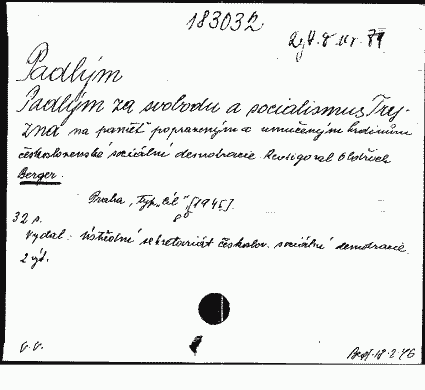 183032
Padlým
Padlým za svobodu a socialismus. Try-
zna na paměť popraveným a umučeným hrdinům
československé sociální demokracie. Revigoval Oldřich
Berger.
Praha, Typ. "Cíl" [1945].
32 s.
Vydal: Ústřední sekretariát českoslov. sociální demokracie.
2 výt.